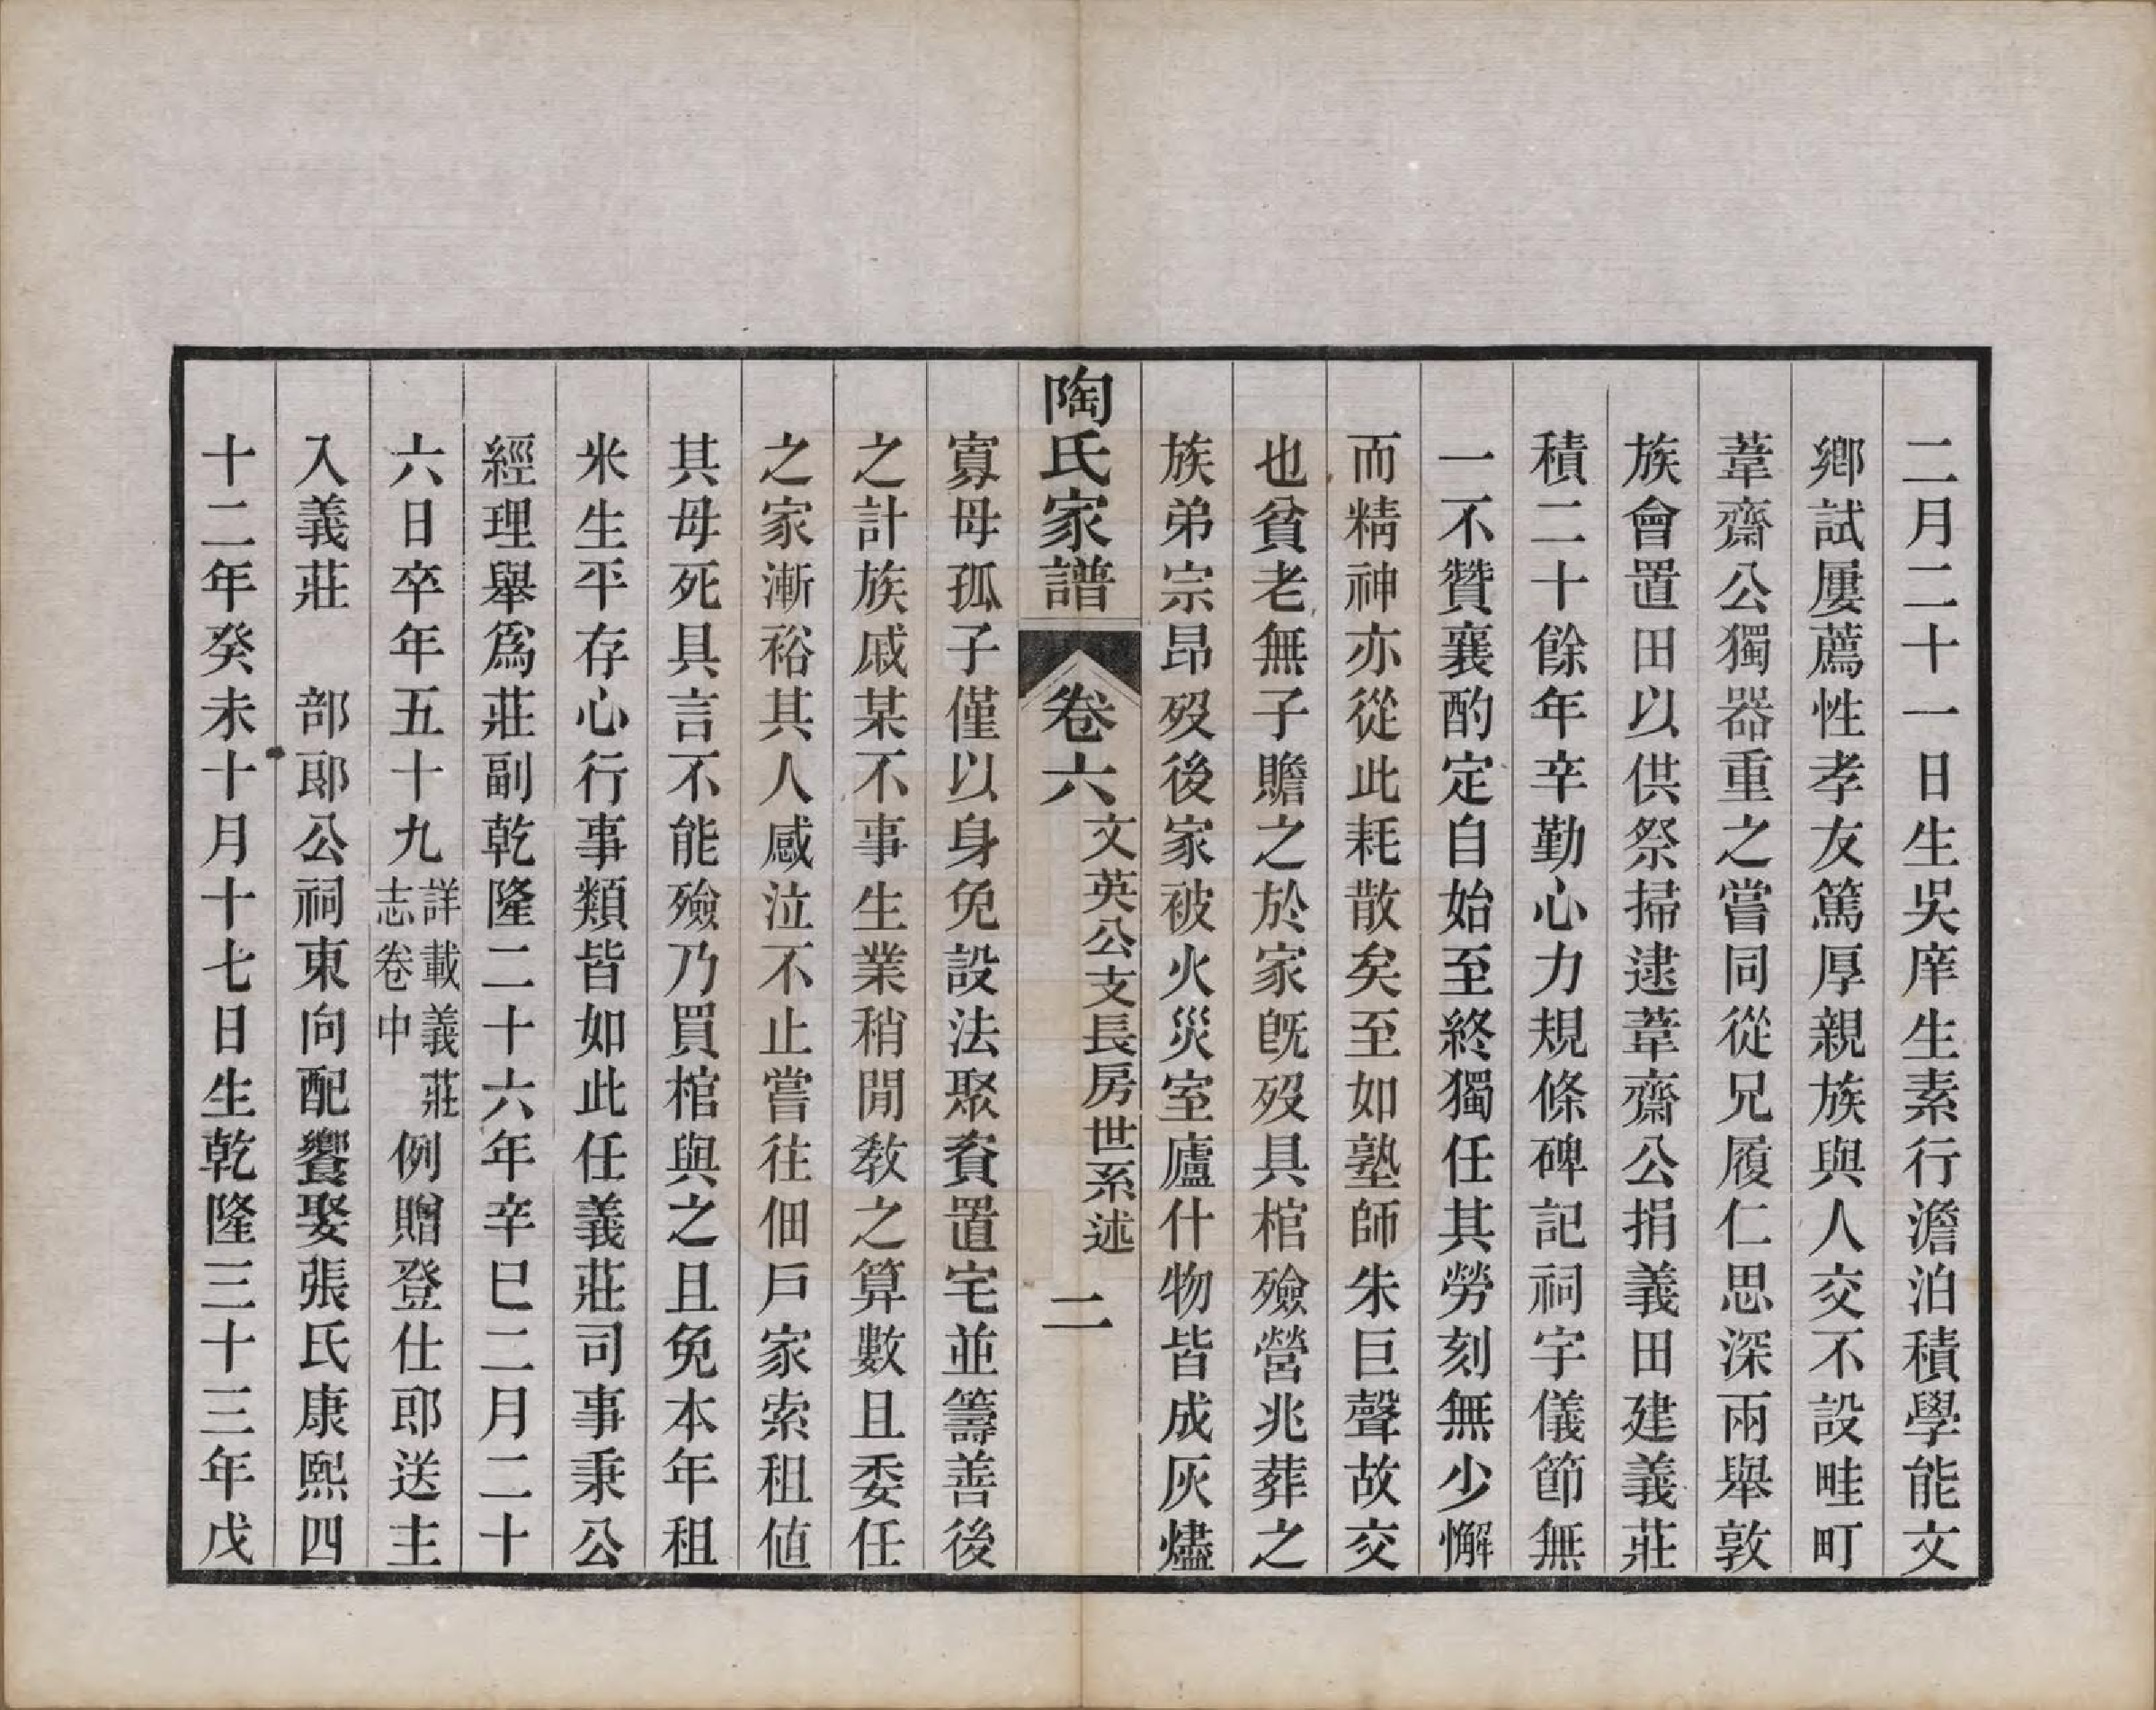 二月二十一日生吳庠生素行澹泊積學能文
鄉試屢薦性孝友篤厚親族與人交不設畦町
葦齋公獨器重之嘗同從兄履仁思深兩舉敦
族會置田以供祭掃逮葦齋公捐義田建義莊
積二十餘年辛勤心力規條碑記祠宇儀節無
一不贊襄酌定自始至終獨任其勞刻無少懈
而精神亦從此耗散矣至如塾師朱巨聲故交
也貧老無子贍之於家旣歿具棺殮營兆葬之
族弟宗昂歿後家被火災室廬什物皆成灰燼
陶氏家譜 卷六 文英公支長房世系述 二
寡母孤子僅以身免設法聚貲置宅並籌善後
之計族戚某不事生業稍閒教之算數且委任
之家漸裕其人感泣不止嘗往佃戶家索租值
其母死具言不能殮乃買棺與之且免本年租
米生平存心行事類皆如此任義莊司事秉公
經理舉爲莊副乾隆二十六年辛巳二月二十
六日卒年五十九詳載義莊志卷中例贈登仕郎送主
入義莊 部郎公祠東向配饗娶張氏康熙四
十二年癸未十月十七日生乾隆三十三年戊